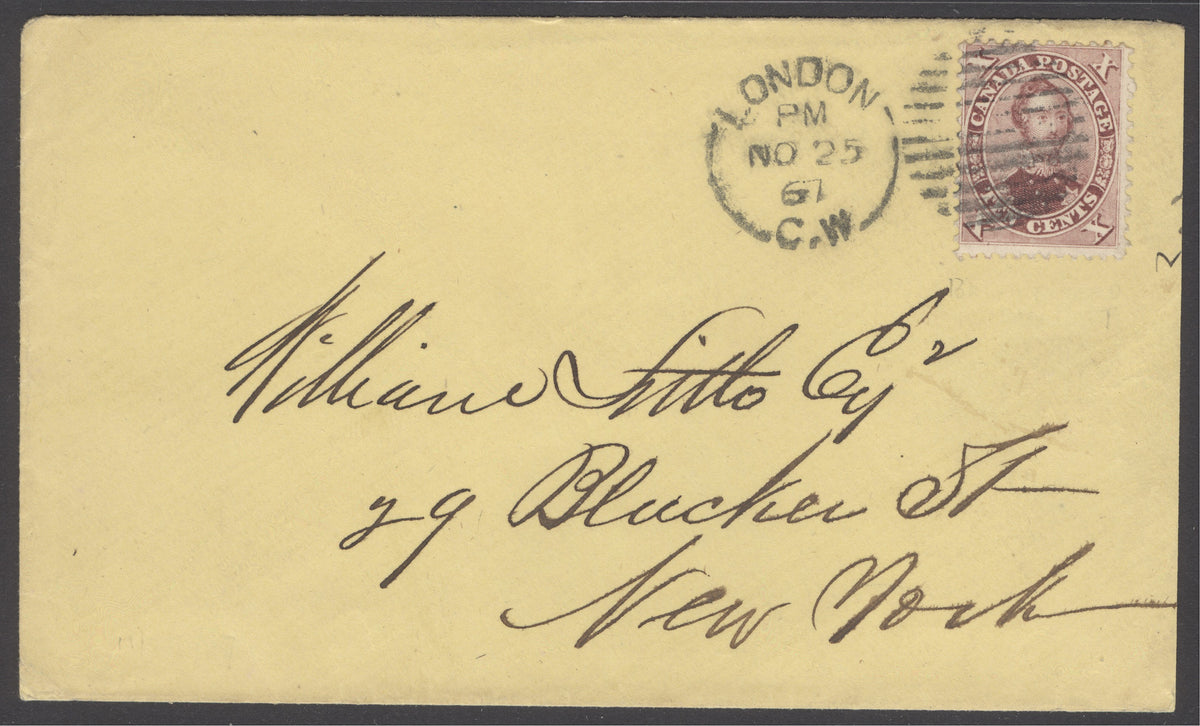 LONDON
PM
NO 25
67
C.W
X X
CANADA POSTAGE
TEN CENTS
X X
William Sitto Esqr
29 Blucker St
New York